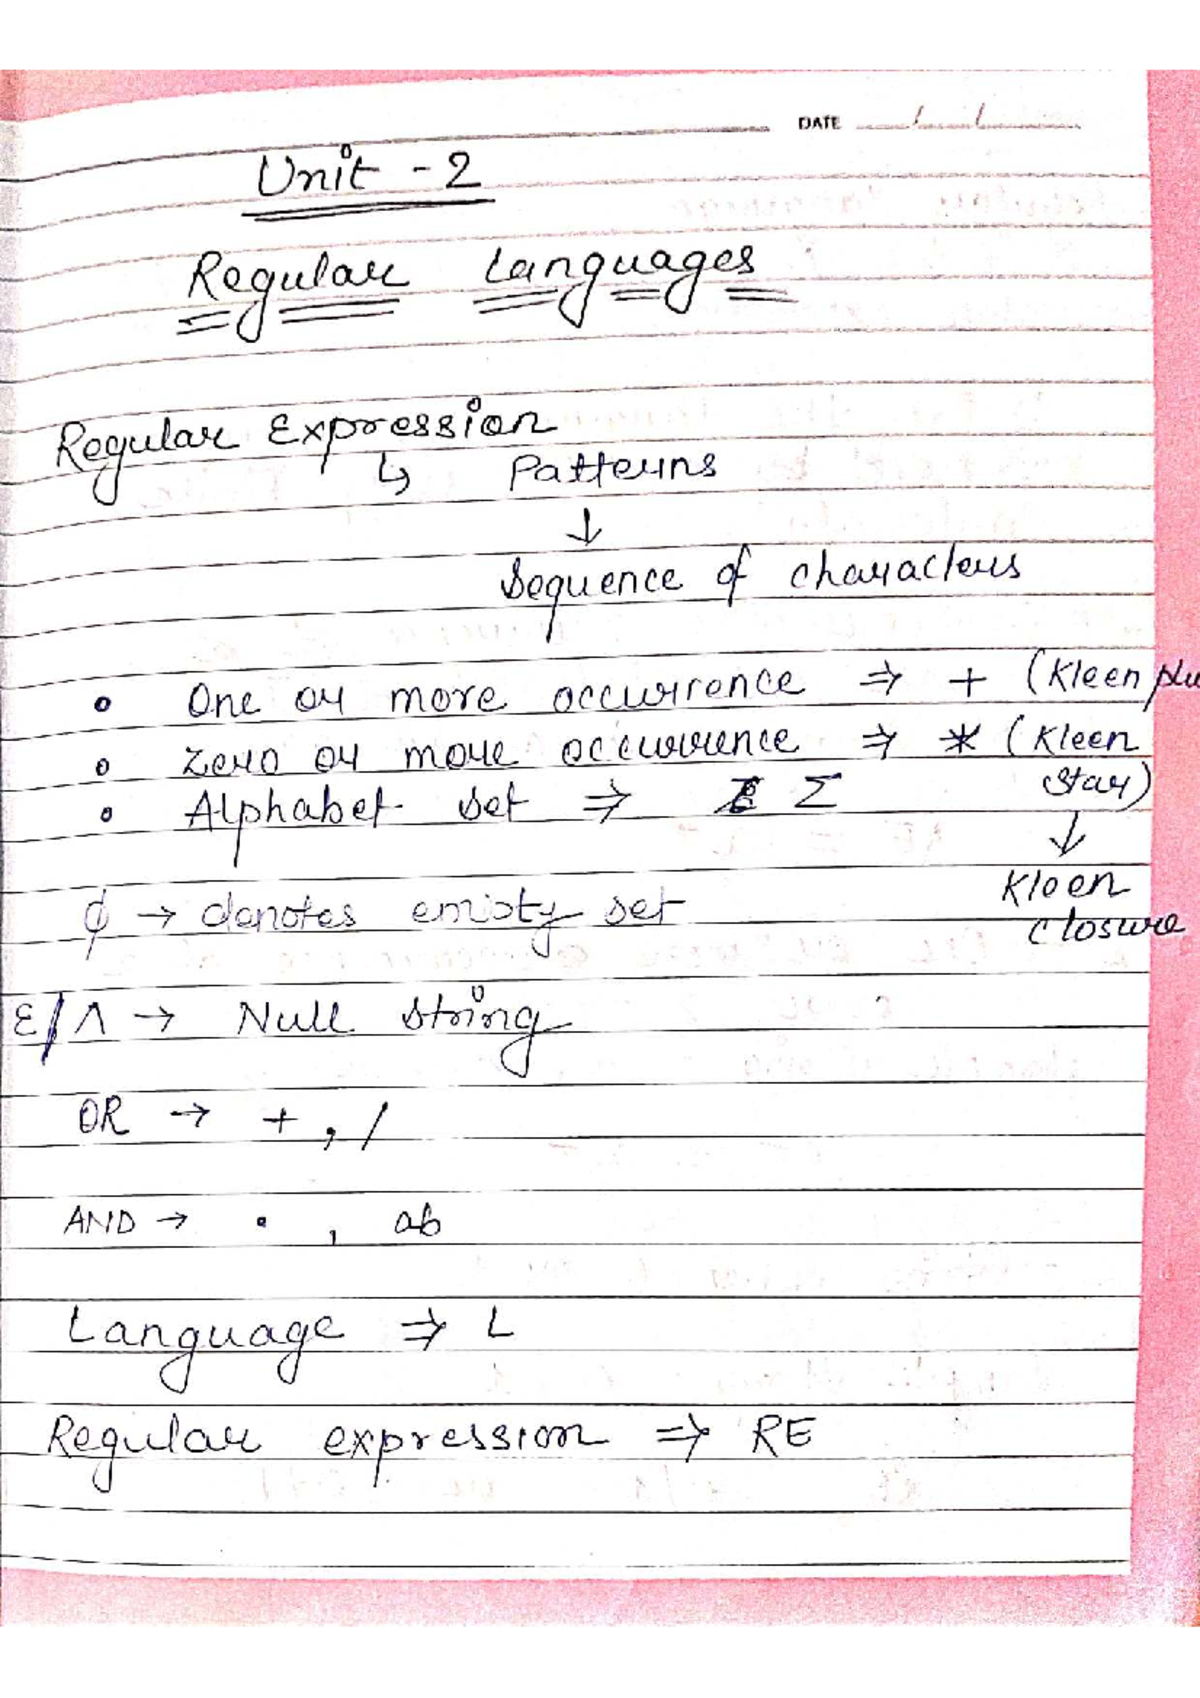 DATE / /
Unit - 2
Regular Languages
Regular Expression
↳ Patterns
↓
Sequence of characters
• One or more occurrence ⇒ + (Kleen plu
• Zero or more occurrence ⇒ * (Kleen
star)
• Alphabet set ⇒ Σ
↓
Kleen
closure
φ → denotes empty set
ε/Λ → Null string
OR → + , /
AND → • , ab
Language ⇒ L
Regular expression ⇒ RE